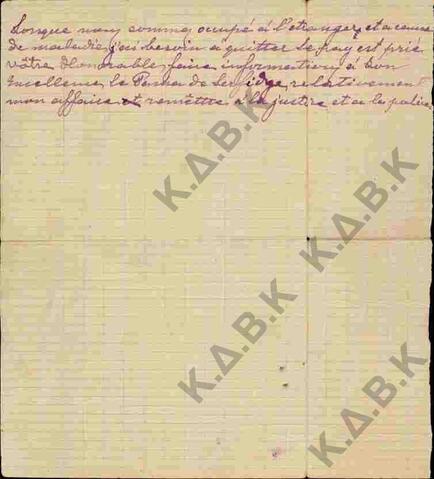 Lorsque nous sommes occupé á l'etranger, et a cause
de maladie j'ai besoin a quitter le pay est prié
vôtre Honorable, faire information á Son
Excellence le Pacha de relativement
mon affaire et remettre á la justice et a la police
Κ.Δ.Β.Κ
Κ.Δ.Β.Κ
Κ.Δ.Β.Κ
Κ.Δ.Β.Κ